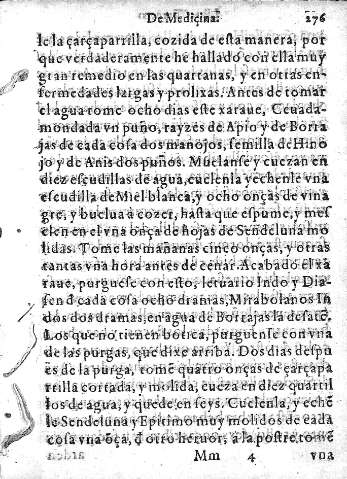 De Mediçina. 276
le la çarçaparrilla, cozida de esta manera, por
que verdaderamente he hallado con ella muy
gran remedio en las quartanas, y en otras en-
fermedades largas y prolixas. Antes de tomar
el agua tome ocho dias este xaraue, Ceuada
mondada vn puño, rayzes de Apio y de Borra
jas de cada cosa dos manojos, semilla de Hino
jo y de Anis dos puños. Muelanse y cuezan en
diez escudillas de agua, cuelenla y echenle vna
escudilla de Miel blanca, y ocho onças de vina
gre, y buelua à cozer, hasta que espume, y mes
clen en el vna onça de hojas de Sendeluna mo
lidas. Tome las mañanas cinco onças, y otras
tantas vna hora antes de cenar. Acabado el xa
raue, purguese con esto, letuario Indo y Dia-
send cada cosa ocho dramas, Mirabolanos In
dos dos dramas, en agua de Borrajas
Los que no tienen botica, purguense con vna
de las purgas, que dixe arriba. Dos dias despu
es de la purga, tomē quatro onças de çarçapa
rrilla cortada, y molida, cueza en diez quartil
los de agua, y quede en seys. Cuelenla, y echē
le Sendeluna y Epitimo muy molidos de cada
cosa vna ōça, đ otro heruor, à la postre, tomē
Mm 4 vna